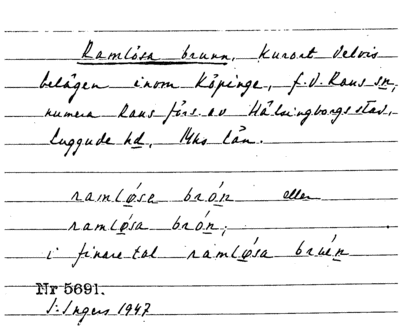 Ramlösa brunn, kurort delvis
belägen inom Köpinge, f.d. Raus sn,
numera Raus förs. av Hälsingborgs stad,
Luggude hd, Mhs län.
ramlǿsa brón eller
ramlǿsa brón;
i finare tal ramlǿsa bruén
Nr 5691.
I. Ingers 1947